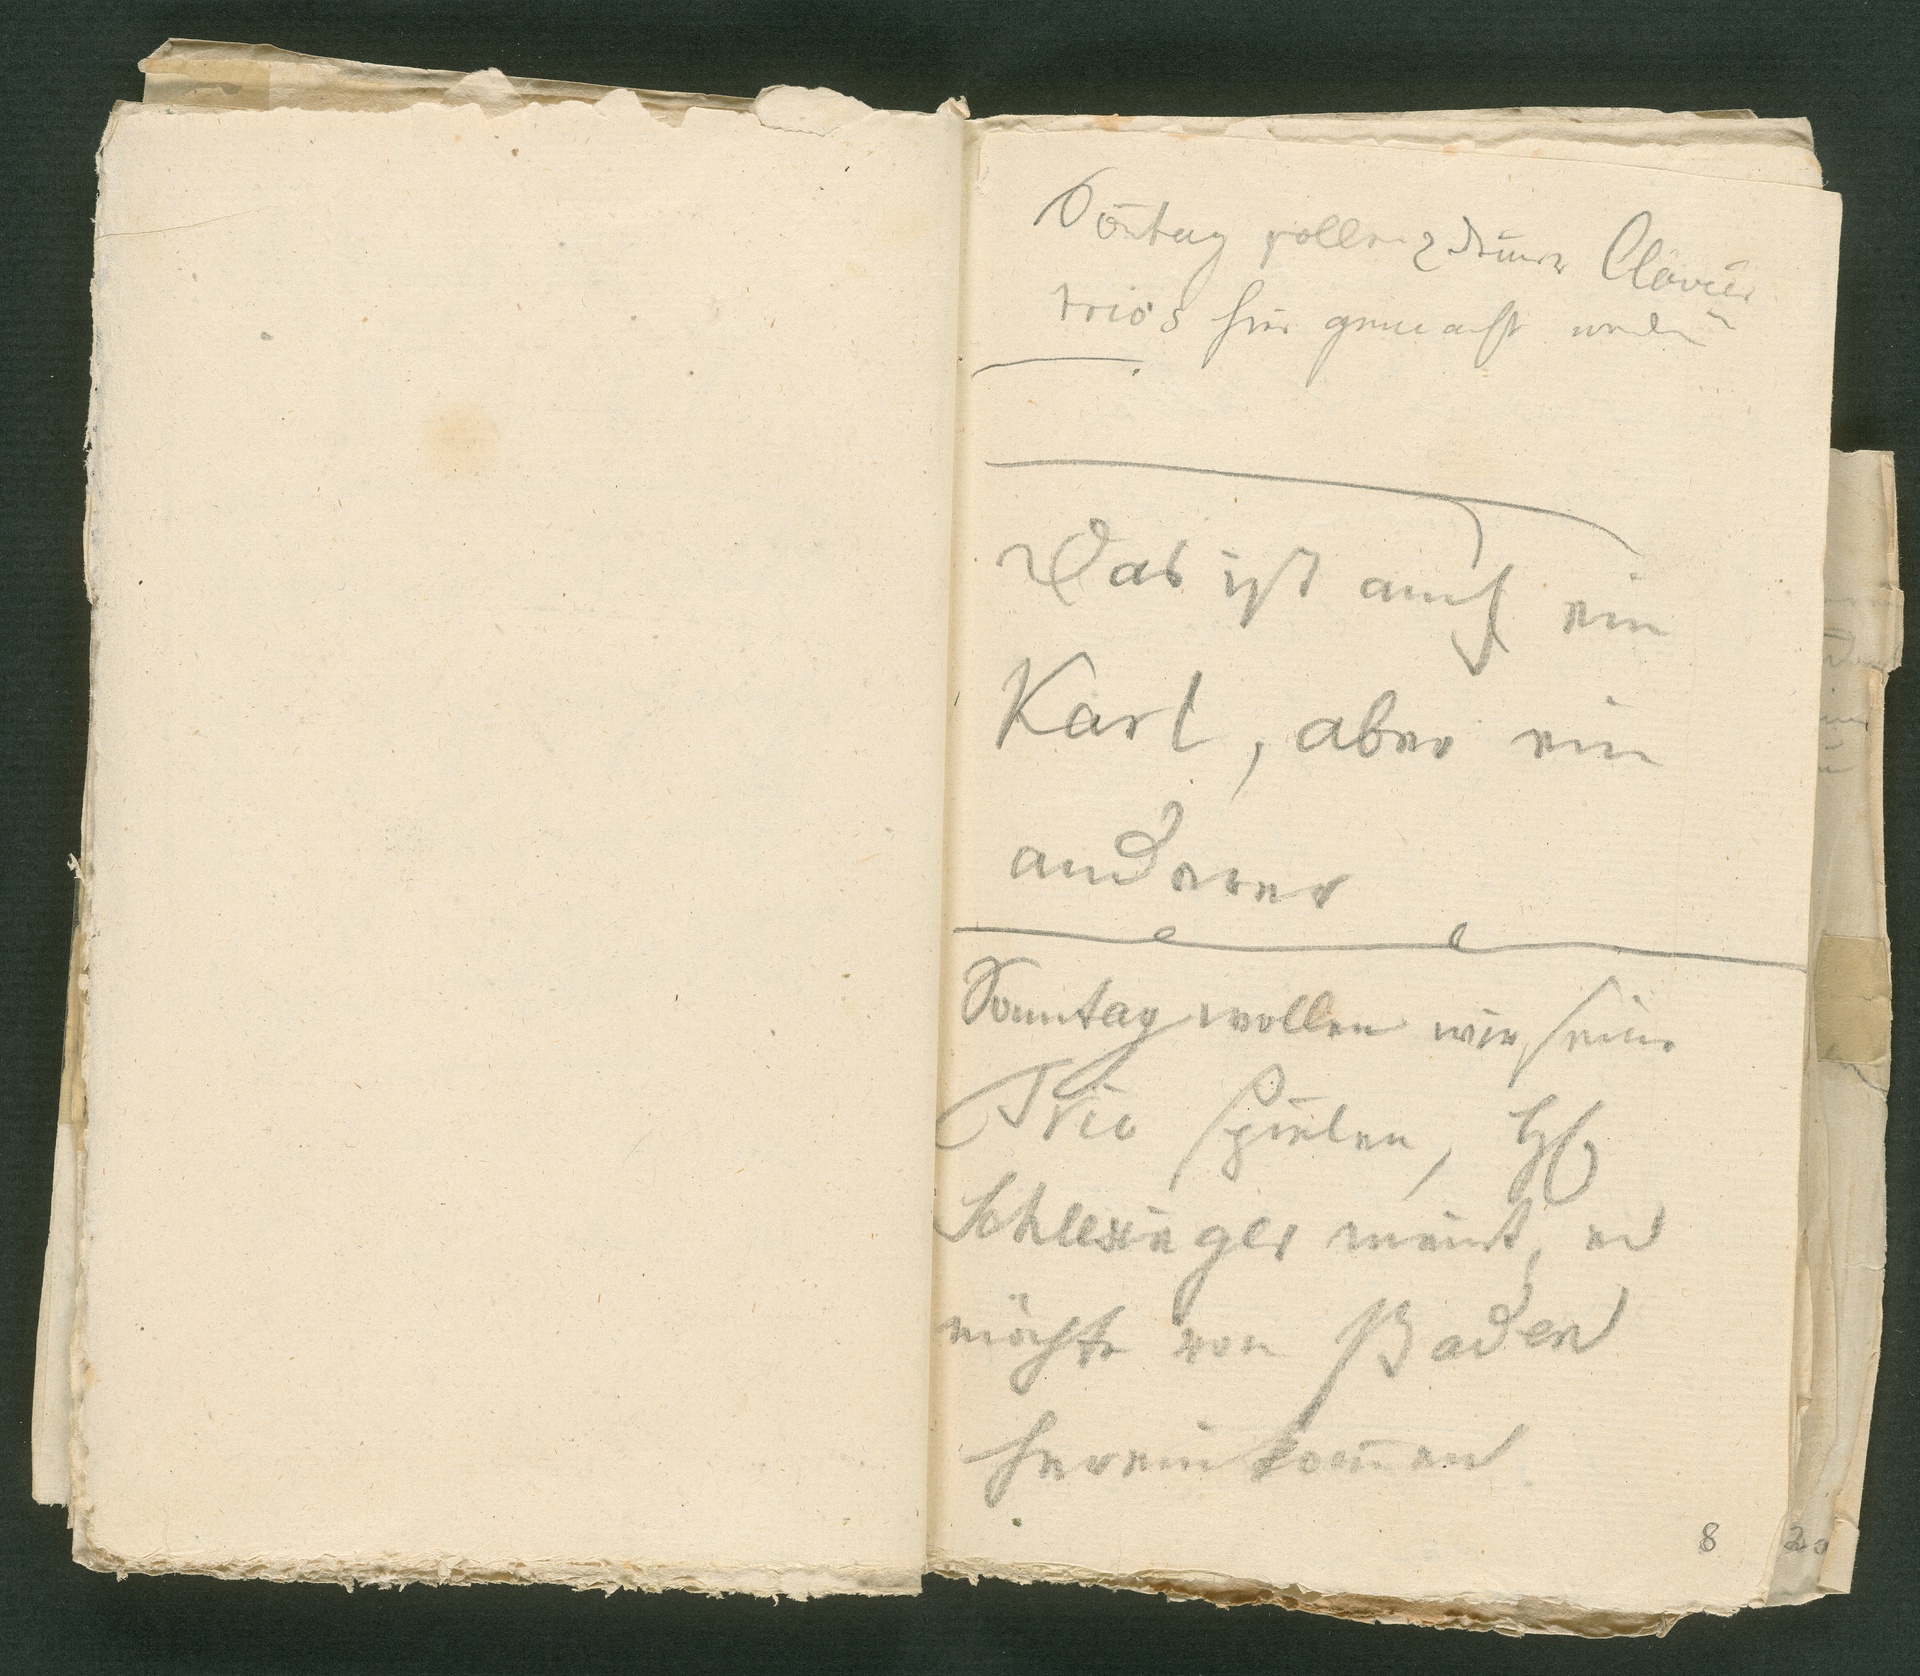 Sontag sollen 2 deiner Clavier
trios hier gemacht werden
Das ist auch ein
Karl, aber ein
anderer
Sonntag wollen wir seine
Trio spielen, H
Schlesinger meint, er
möchte von Baden
herein kom̅en
8
20